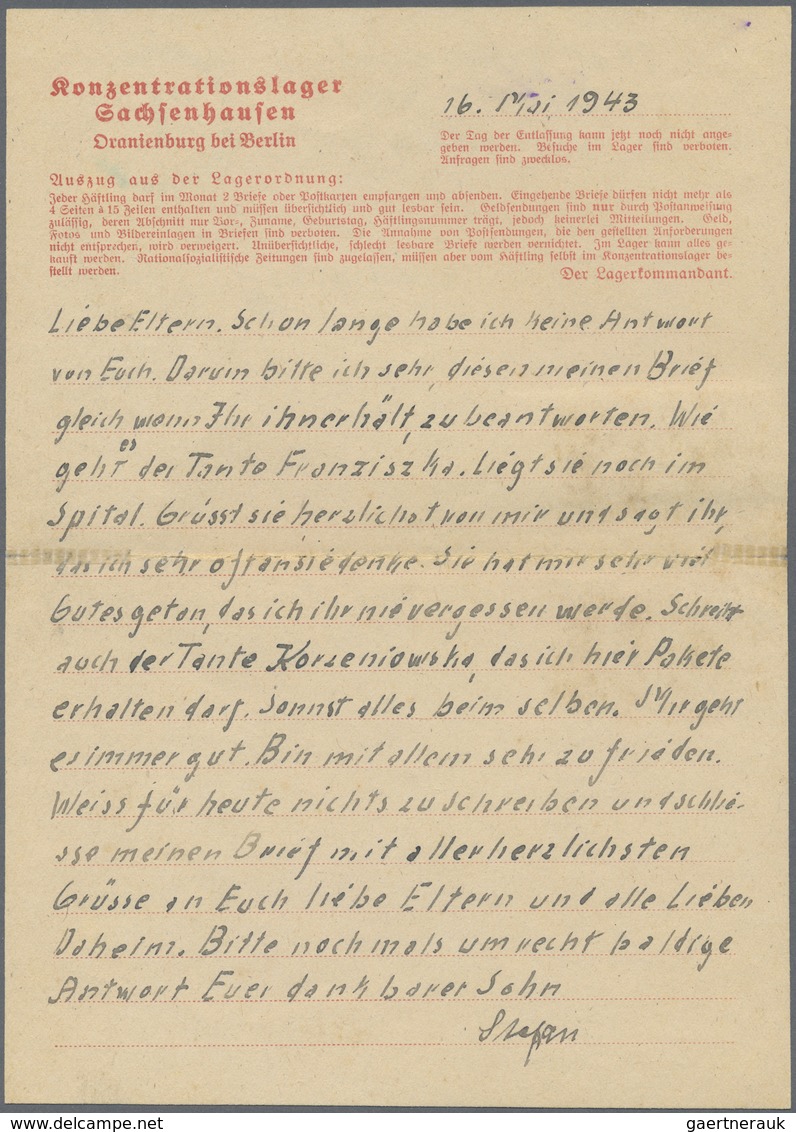 Konzentrationslager
Sachsenhausen
Oranienburg bei Berlin
16. Mai 1943
Der Tag der Entlassung kann jetzt noch nicht ange-
geben werden. Besuche im Lager sind verboten.
Anfragen sind zwecklos.
Auszug aus der Lagerordnung:
Jeder Häftling darf im Monat 2 Briefe oder Postkarten empfangen und absenden. Eingehende Briefe dürfen nicht mehr als
4 Seiten à 15 Zeilen enthalten und müssen übersichtlich und gut lesbar sein. Geldsendungen sind nur durch Postanweisung
zulässig, deren Abschnitt nur Vor-, Zuname, Geburtstag, Häftlingsnummer trägt, jedoch keinerlei Mitteilungen. Geld,
Fotos und Bildereinlagen in Briefen sind verboten. Die Annahme von Postsendungen, die den gestellten Anforderungen
nicht entsprechen, wird verweigert. Unübersichtliche, schlecht lesbare Briefe werden vernichtet. Im Lager kann alles ge-
kauft werden. Nationalsozialistische Zeitungen sind zugelassen, müssen aber vom Häftling selbst im Konzentrationslager be-
stellt werden.
Der Lagerkommandant.
Liebe Eltern. Schon lange habe ich keine Antwort
von Euch. Darum bitte ich sehr, diesen meinen Brief
gleich wenn Ihr ihn erhält, zu beantworten. Wie
geht es der Tante Franziszka. Liegt sie noch im
Spital. Grüsst sie herzlichst von mir und sagt ihr,
das ich sehr oft an sie denke. Sie hat mir sehr viel
Gutes getan, das ich ihr nie vergessen werde. Schreibt
auch der Tante Korzeniowska, das ich hier Pakete
erhalten darf. Sonnst alles beim selben. Mir geht
es immer gut. Bin mit allem sehr zufrieden.
Weiss für heute nichts zu schreiben und schlie-
sse meinen Brief mit allerherzlichsten
Grüsse an Euch liebe Eltern und alle Lieben
Daheim. Bitte nochmals um recht baldige
Antwort Euer dankbarer Sohn
Stefan
gaertnerauk